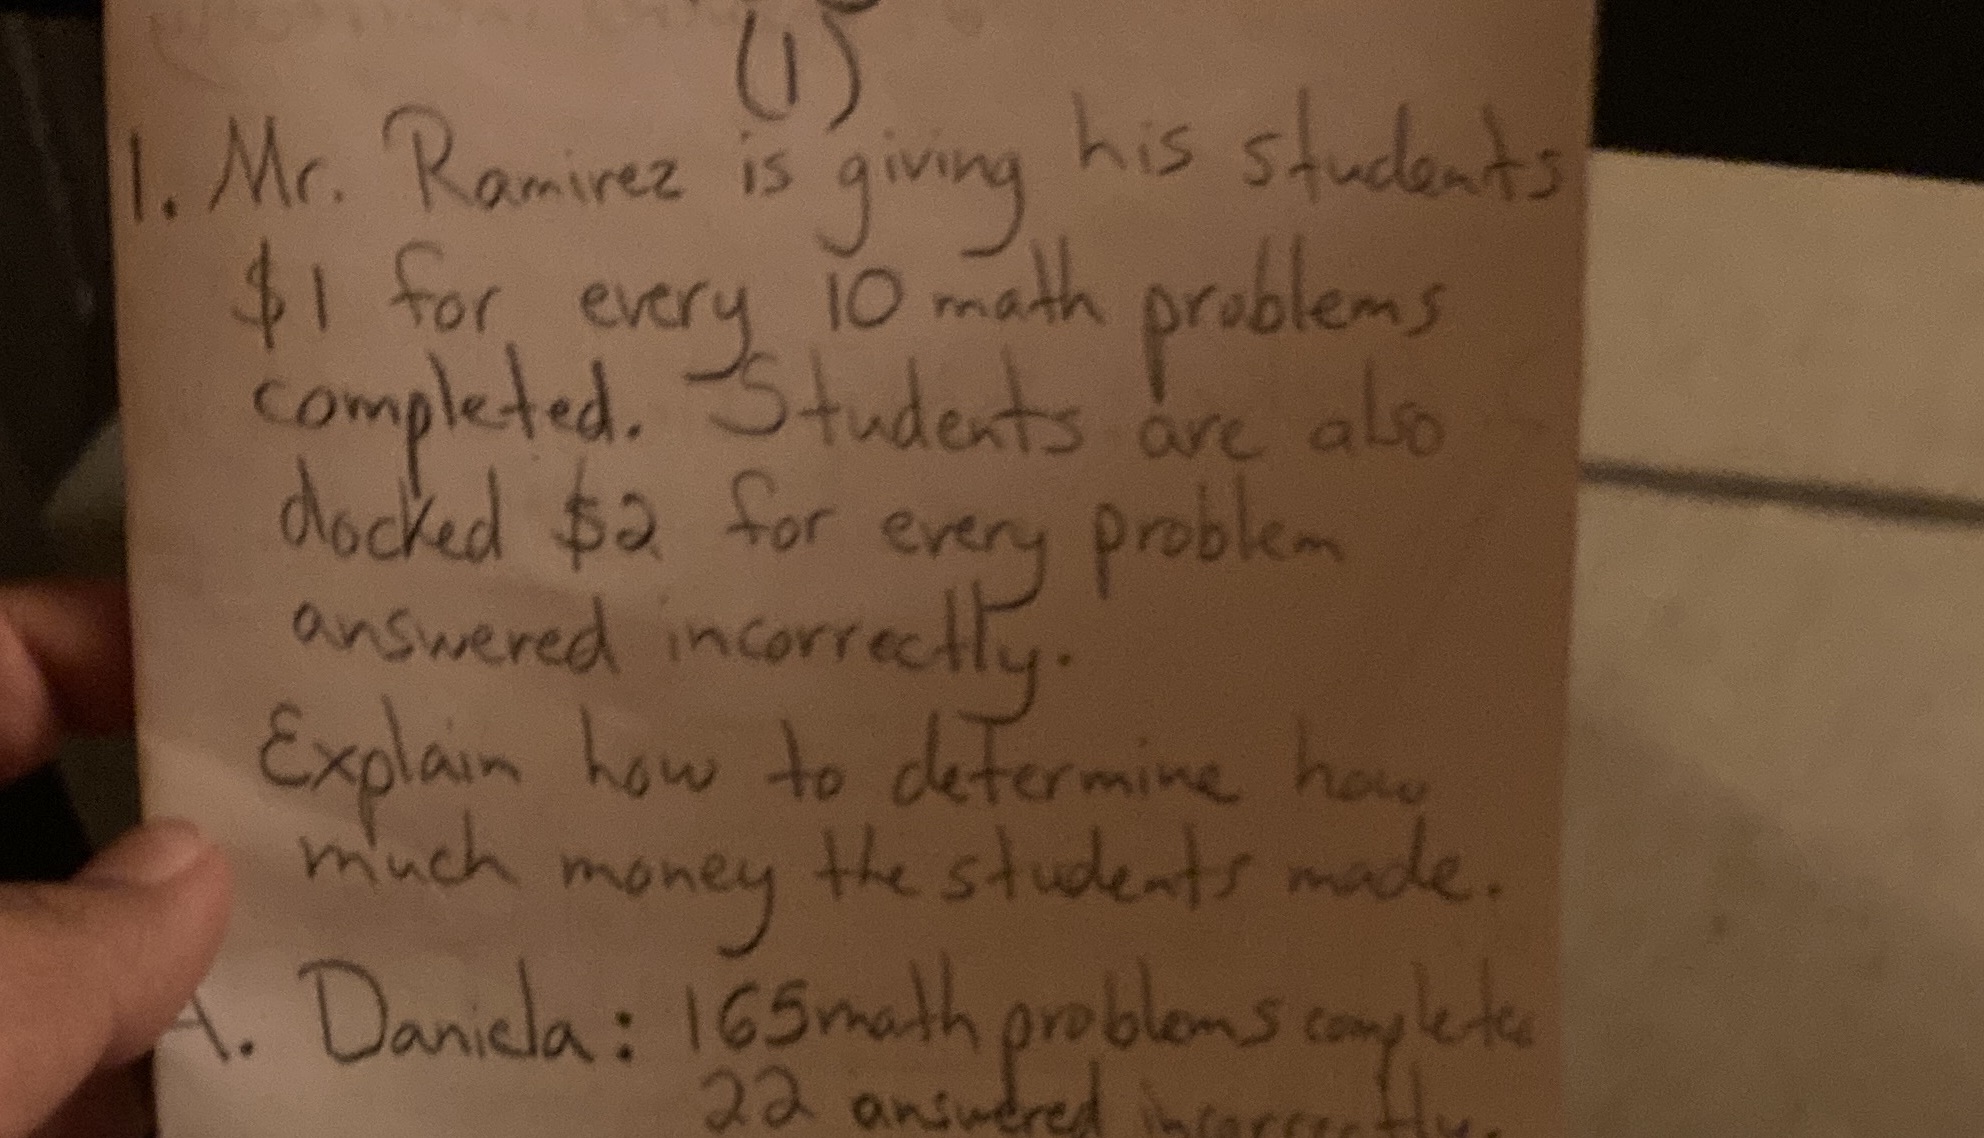 (1)
1. Mr. Ramirez is giving his students
$1 for every 10 math problems
completed. Students are also
docked $2 for every problem
answered incorrectly.
Explain how to determine how
much money the students made.
A. Daniela: 165 math problems completed
22 answered incorrectly.